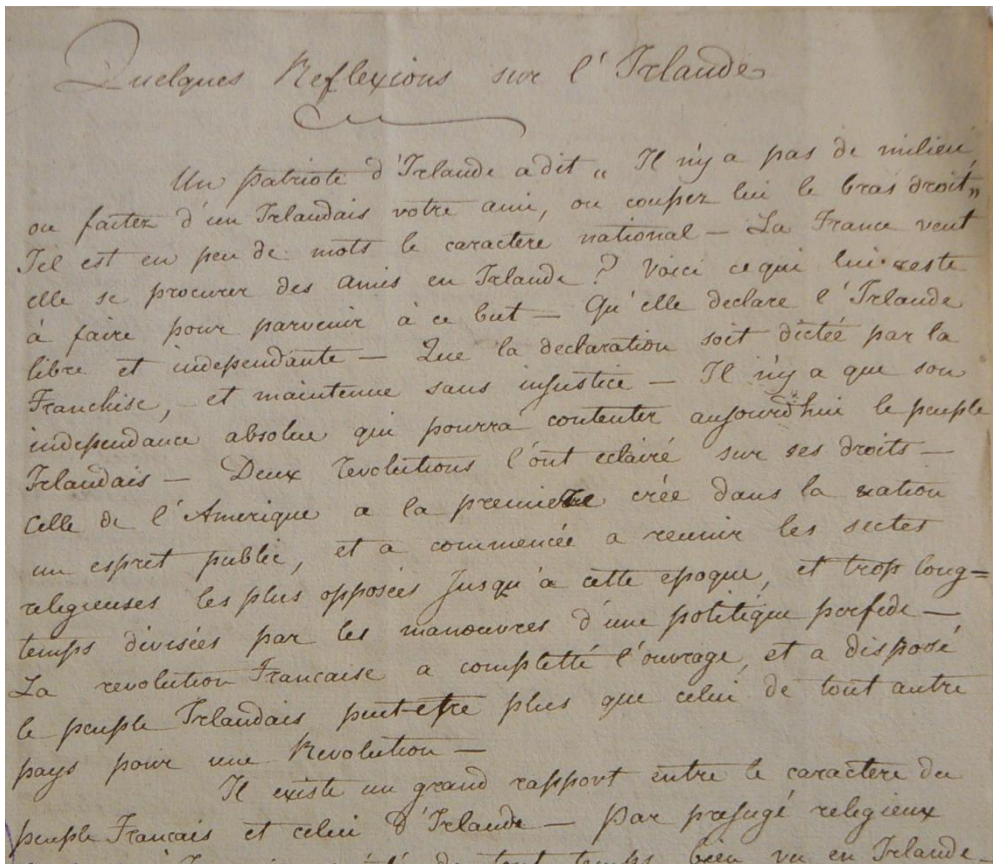 Quelques Reflexions sur l'Irlande
Un patriote d'Irlande a dit „ Il n'y a pas de milieu,
ou faitez d'un Irlandais votre ami, ou coupez lui le bras droit „
Tel est en peu de mots le caractere national — La France veut
elle se procurer des amis en Irlande ? Voici ce qui lui reste
à faire pour parvenir à ce but — Qu'elle declare l'Irlande
libre et independante — Que la declaration soit dictée par la
Franchise, et maintenue sans injustice — Il n'y a que son
independance absolue qui pourra contenter aujourd'hui le peuple
Irlandais — Deux revolutions l'ont eclairé sur ses droits —
Celle de l'Amerique a la premiere crée dans la nation
un espret public, et a commencée a reunir les sectes
religieuses les plus opposées jusqu'a cette epoque, et trop long=
temps divisées par les manœuvres d'une politique perfide —
La revolution Francaise a completté l'ouvrage, et a disposé
le peuple Irlandais peut-etre plus que celui de tout autre
pays pour une Revolution —
Il existe un grand rapport entre le caractere du
peuple Francais et celui d'Irlande — Par prejugé religieux
de tout temps bien vu en Irlande —